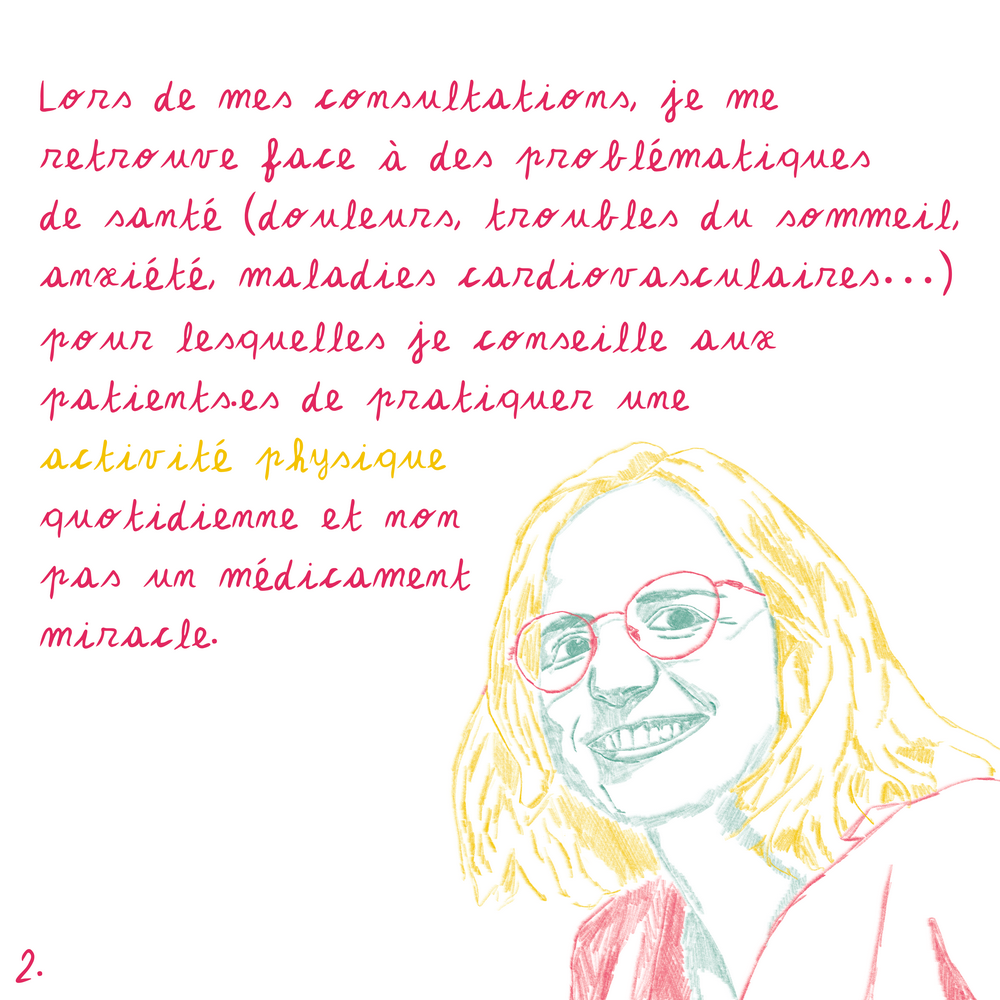 Lors de mes consultations, je me
retrouve face à des problématiques
de santé (douleurs, troubles du sommeil,
anxiété, maladies cardiovasculaires...)
pour lesquelles je conseille aux
patients.es de pratiquer une
activité physique
quotidienne et non
pas un médicament
miracle.
2.